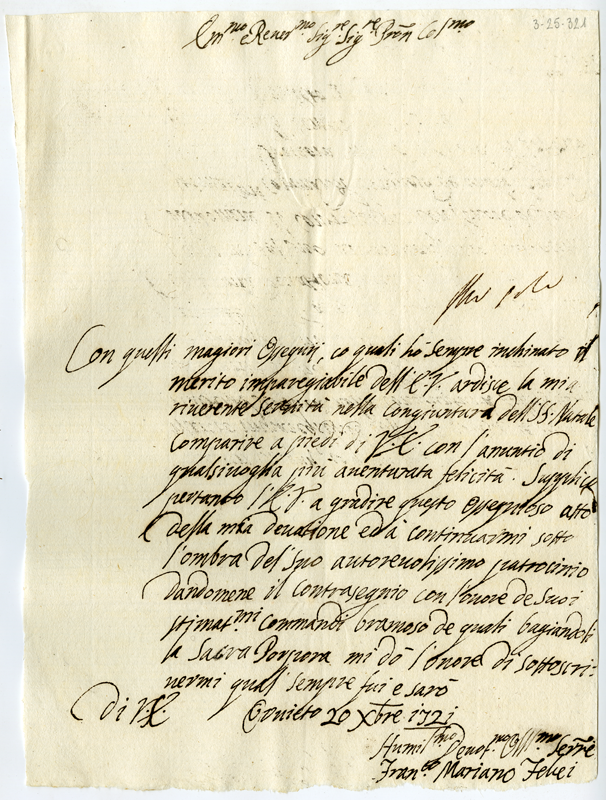 3-25-321
Em.mo e Rever.mo Sig.re Sig.re Pron Col.mo
Con questi magiori Ossequij, co quali hò sempre inchinato il
merito impareggiabile dell'E.V. ardisce la mia
riverente Servitù nella congiuntura dell SS. Natale
comparire a piedi di V.E. con l'anuntio di
qualsivoglia più aventurata felicità. Supplico
pertanto l'E.V. a gradire questo Ossequioso atto
della mia devotione ed à continuarmi sotto
l'ombra del Suo autorevolissimo patrocinio
dandomene il Contrasegnio con l'onore de Suoi
stimat.mi Commandi bramoso de quali bagiandoli
la Sacra Porpora mi dò l'onore di sottoscri-
vermi qual sempre fui e sarò
Di V.E. Orvieto 20 Xbre 1721
Humil.mo Devot.mo Obll.mo Serre
Fran.co Mariano Febei